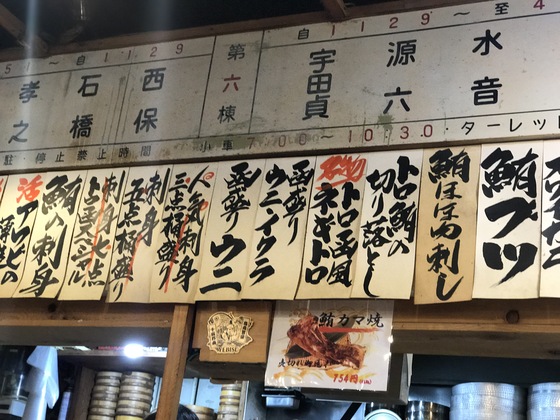 51～自1129
孝之
石橋
西保
第六棟
自1129～至4
宇田貞
源六
水音
駐・停止禁止時間
小車7:00～10:30・ターレット
活
鮪の刺身
刺身七点
トロ函スペシャル
刺身
五点福盛り
人気刺身
三点福盛り
函盛りウニ
函盛り
ウニイクラ
トロ函風
ネギトロ
トロ鮪の
切り落とし
鮪ほほ肉刺し
鮪ブツ
YEBISU
鮪カマ焼
754円